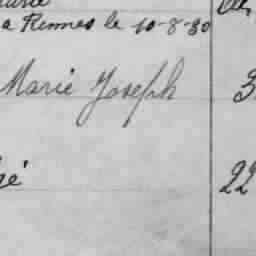 a Rennes le 10-8-80
Marie Joseph 3
é 22